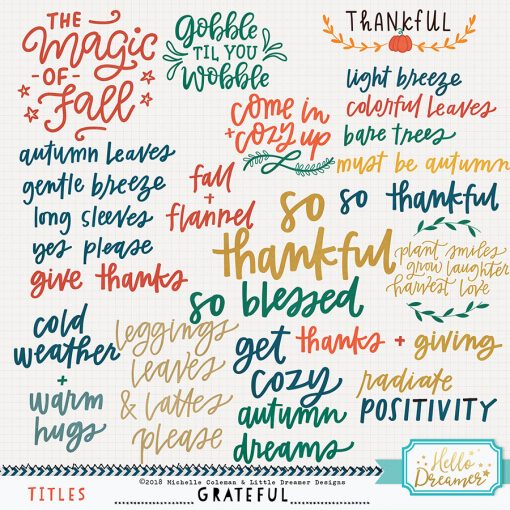 THE
Magic
- OF -
Fall
Gobble
'TIL YOU
Wobble
THANKFUL
light breeze
colorful leaves
bare trees
must be autumn
come in
+ cozy up
autumn leaves
gentle breeze
long sleeves
yes please
give thanks
fall
+
flannel
so
thankful
so blessed
so thankful
plant smiles
grow laughter
harvest love
cold
weather
+
warm
hugs
leggings
leaves
& lattes
please
get
cozy
autumn
dreams
thanks + giving
radiate
POSITIVITY
Hello
Dreamer
©2018 Michelle Coleman & Little Dreamer Designs
TITLES
GRATEFUL